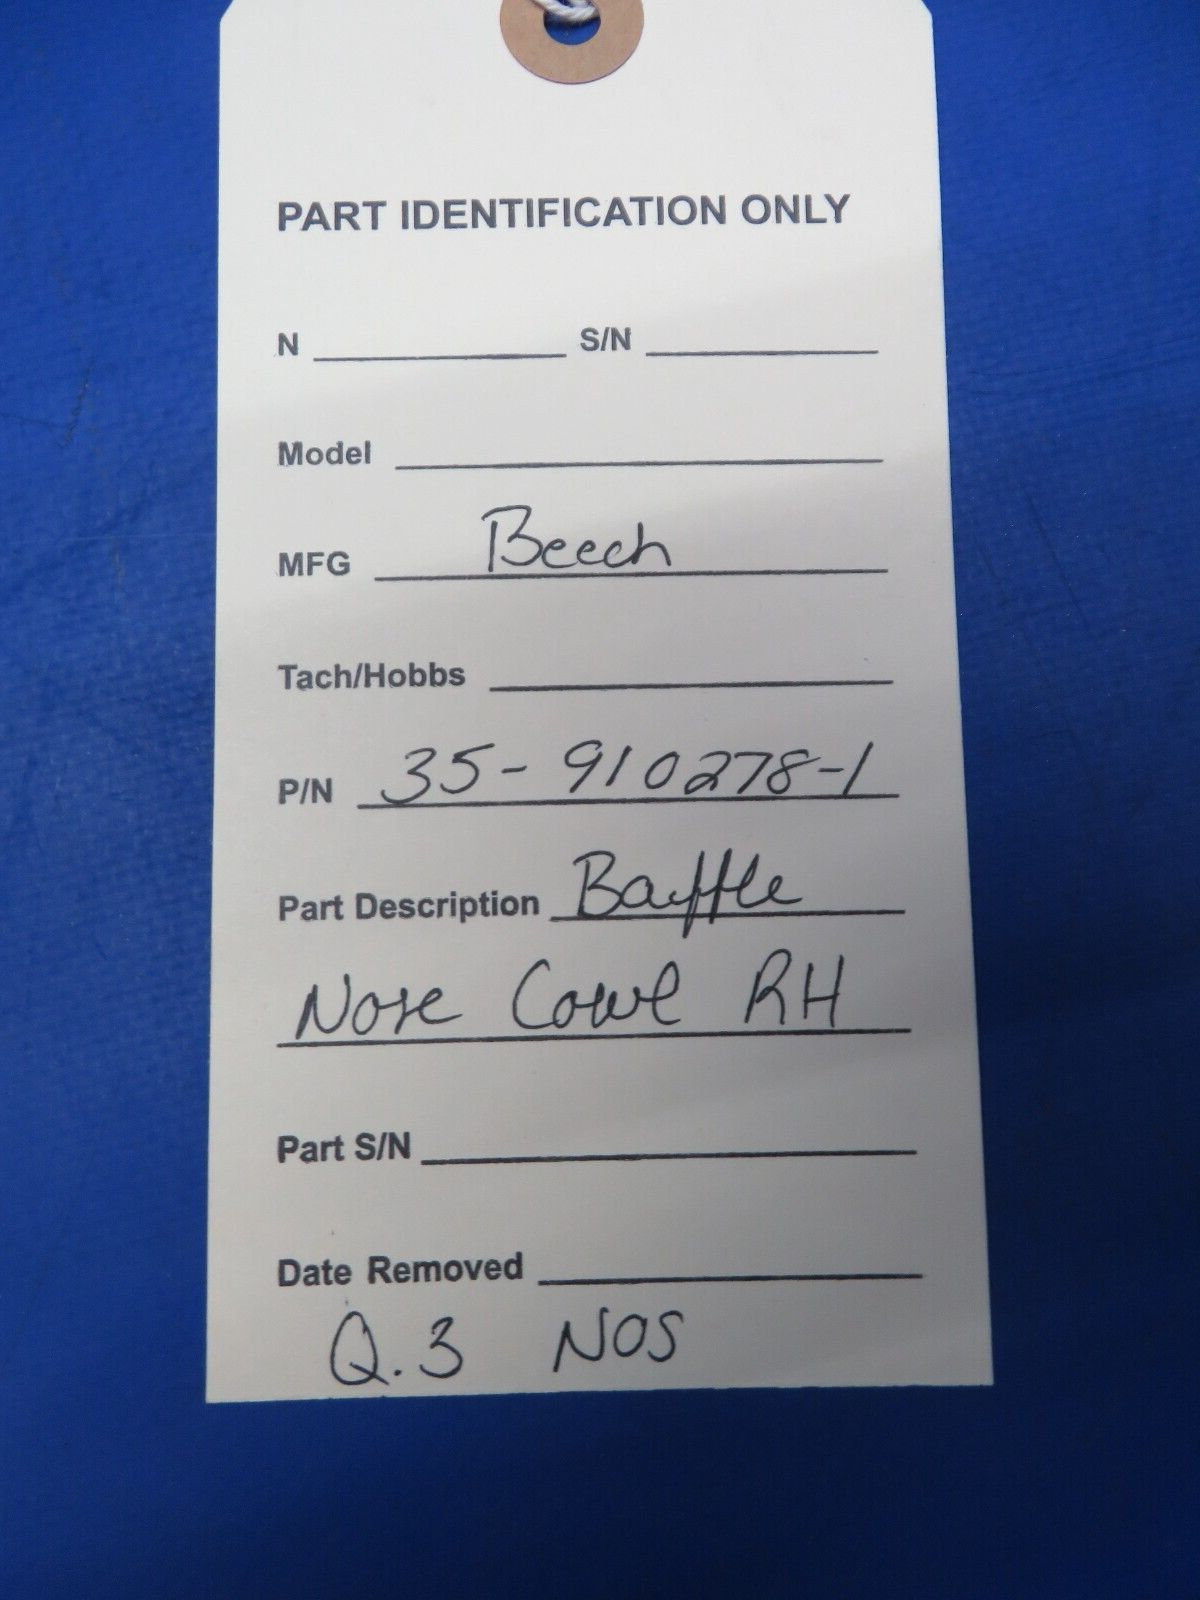 PART IDENTIFICATION ONLY
N S/N
Model
MFG Beech
Tach/Hobbs
P/N 35-910278-1
Part Description Baffle
Nose Cowl RH
Part S/N
Date Removed
Q.3 NOS